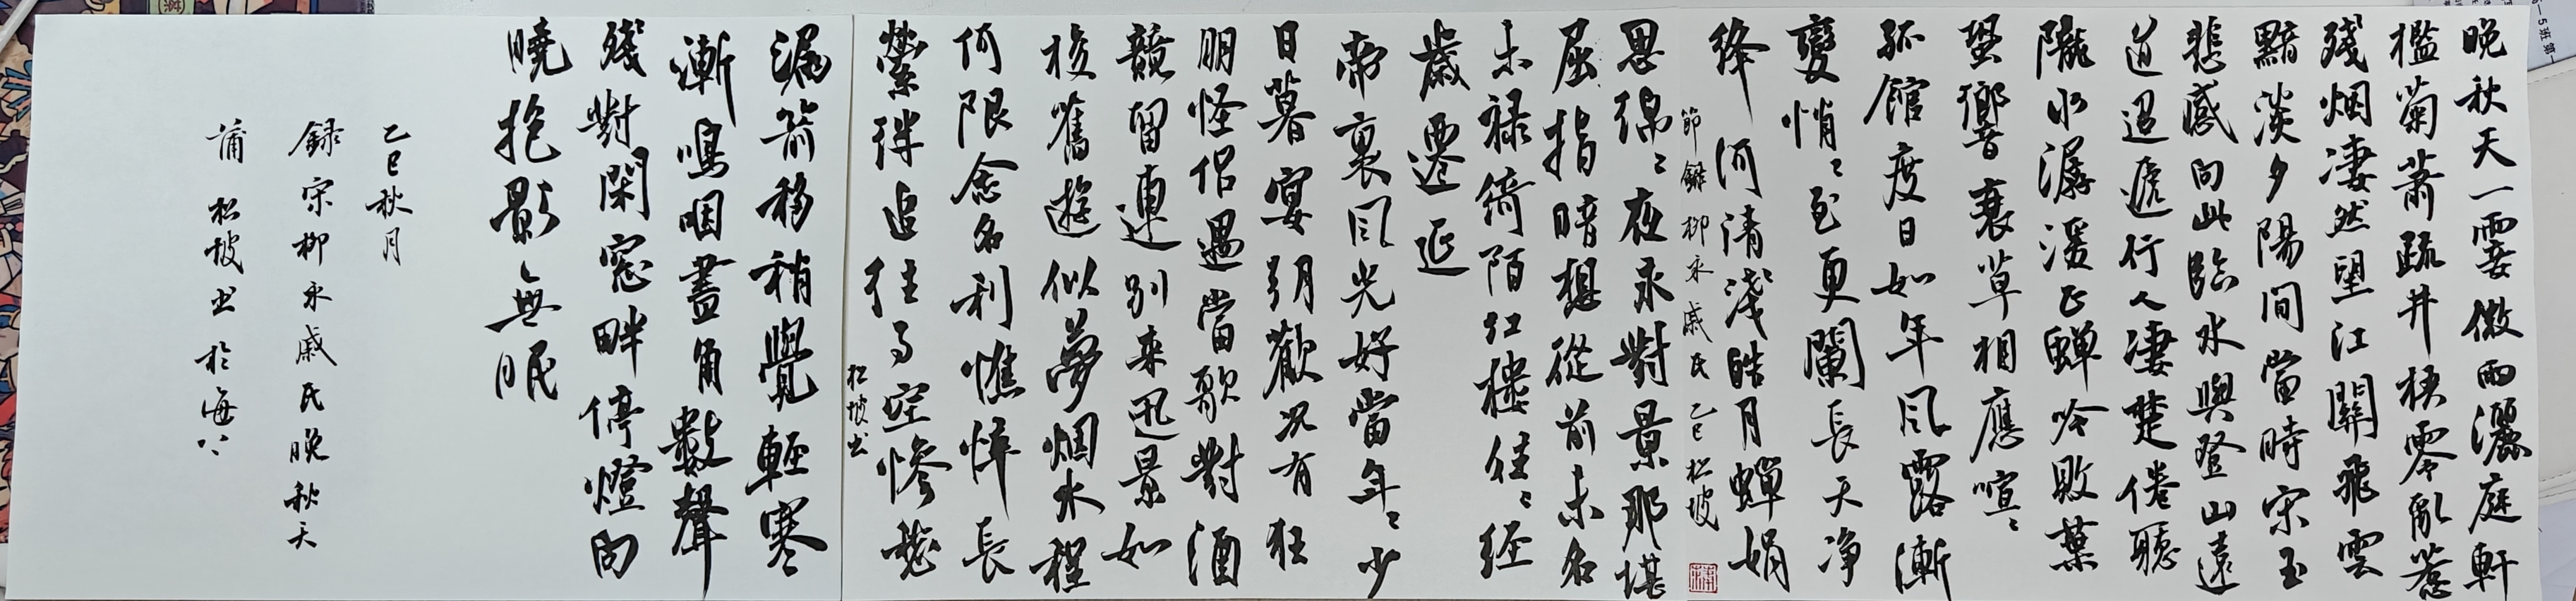 晚秋天一霎微雨灑庭軒
檻菊蕭疏井梧零亂惹
殘烟凄然望江關飛雲
黯淡夕陽間當時宋玉
悲感向此臨水與登山遠
道迢遞行人凄楚倦聽
隴水潺湲正蟬吟敗葉
蛩響衰草相應喧〻
孤館度日如年風露漸
變悄〻至更闌長天净
絳河清淺皓月蟬娟
節錄柳永戚氏乙巳松坡
思綿〻夜永對景那堪
屈指暗想從前未名
未祿綺陌紅樓往〻經
歲遷延
帝裏風光好當年〻少
日暮宴朝歡況有狂
朋怪侶遇當歌對酒
競留連別來迅景如
梭舊遊似夢烟水程
何限念名利憔悴長
縈絆追往事空慘愁
松坡书
漏箭移稍覺輕寒
漸嗚咽畫角數聲
殘對閑窓畔停燈向
曉抱影無眠
乙巳秋月
錄宋柳永戚氏晚秋天
蒲松坡书於海